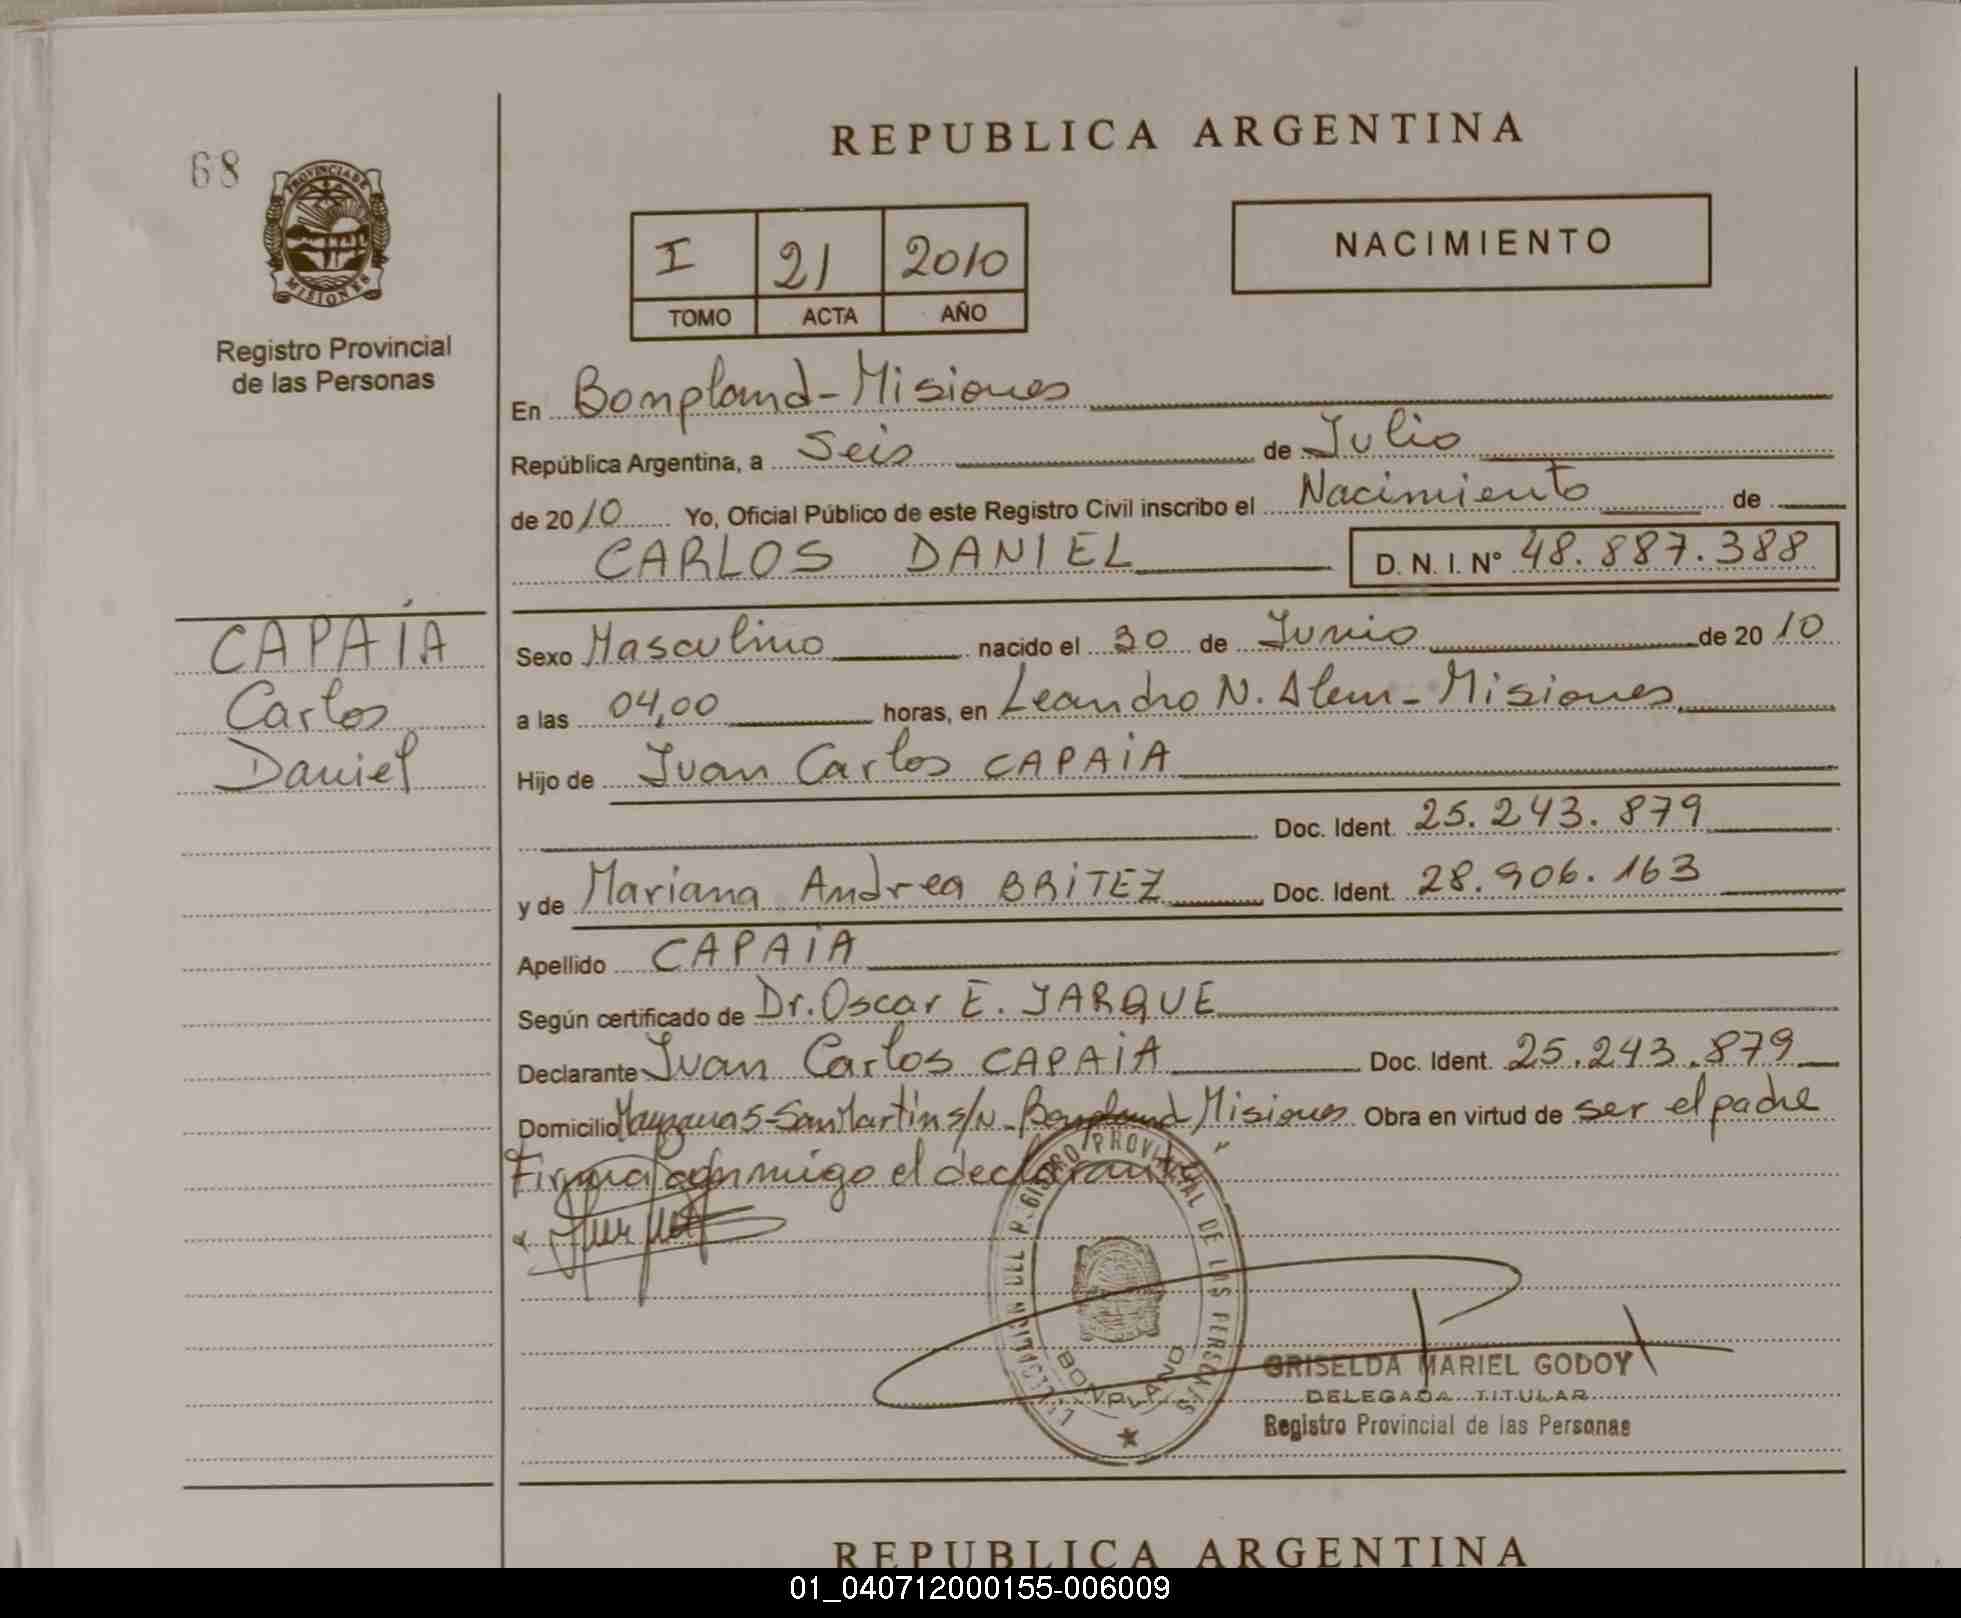 68
PROVINCIA DE
MISIONES
Registro Provincial
de las Personas
REPUBLICA ARGENTINA
I 21 2010
TOMO ACTA AÑO
NACIMIENTO
En Bompland-Misiones
República Argentina, a Seis de Julio
de 2010 Yo, Oficial Público de este Registro Civil inscribo el Nacimiento de
CARLOS DANIEL D. N. I. Nº 48.887.388
CAPAÍA
Carlos
Daniel
Sexo Masculino nacido el 30 de Junio de 2010
a las 04,00 horas, en Leandro N. Alem-Misiones
Hijo de Juan Carlos CAPAIA
Doc. Ident. 25.243.879
y de Mariana Andrea BRITEZ Doc. Ident. 28.906.163
Apellido CAPAIA
Según certificado de Dr. Oscar E. JARQUE
Declarante Juan Carlos CAPAIA Doc. Ident. 25.243.879
Domicilio Manzana 5-San Martin s/N-Bonpland Misiones Obra en virtud de ser el padre
Firma conmigo el declarante
PROVINCIAL DE LAS PERSONAS
BONPLAND
GRISELDA MARIEL GODOY
DELEGADA TITULAR
Registro Provincial de las Personas
REPUBLICA ARGENTINA
01_040712000155-006009